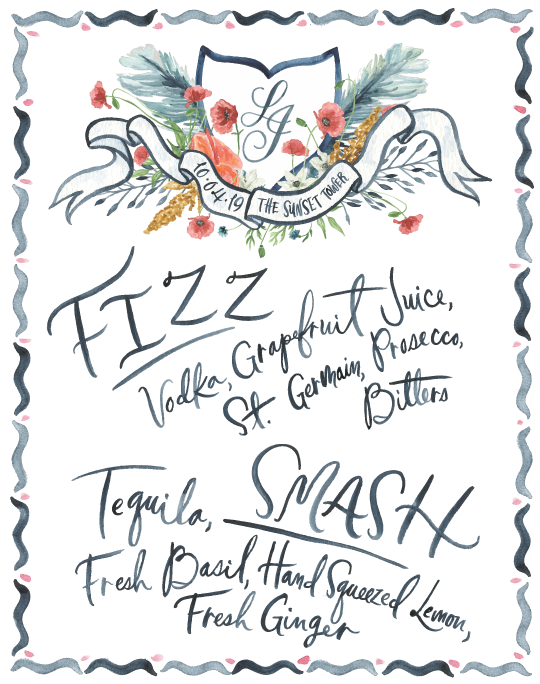 LJ
10·04·19 THE SUNSET TOWER
FIZZ
Vodka, Grapefruit Juice,
St. Germain, Prosecco,
Bitters
SMASH
Tequila,
Fresh Basil, Hand Squeezed Lemon,
Fresh Ginger